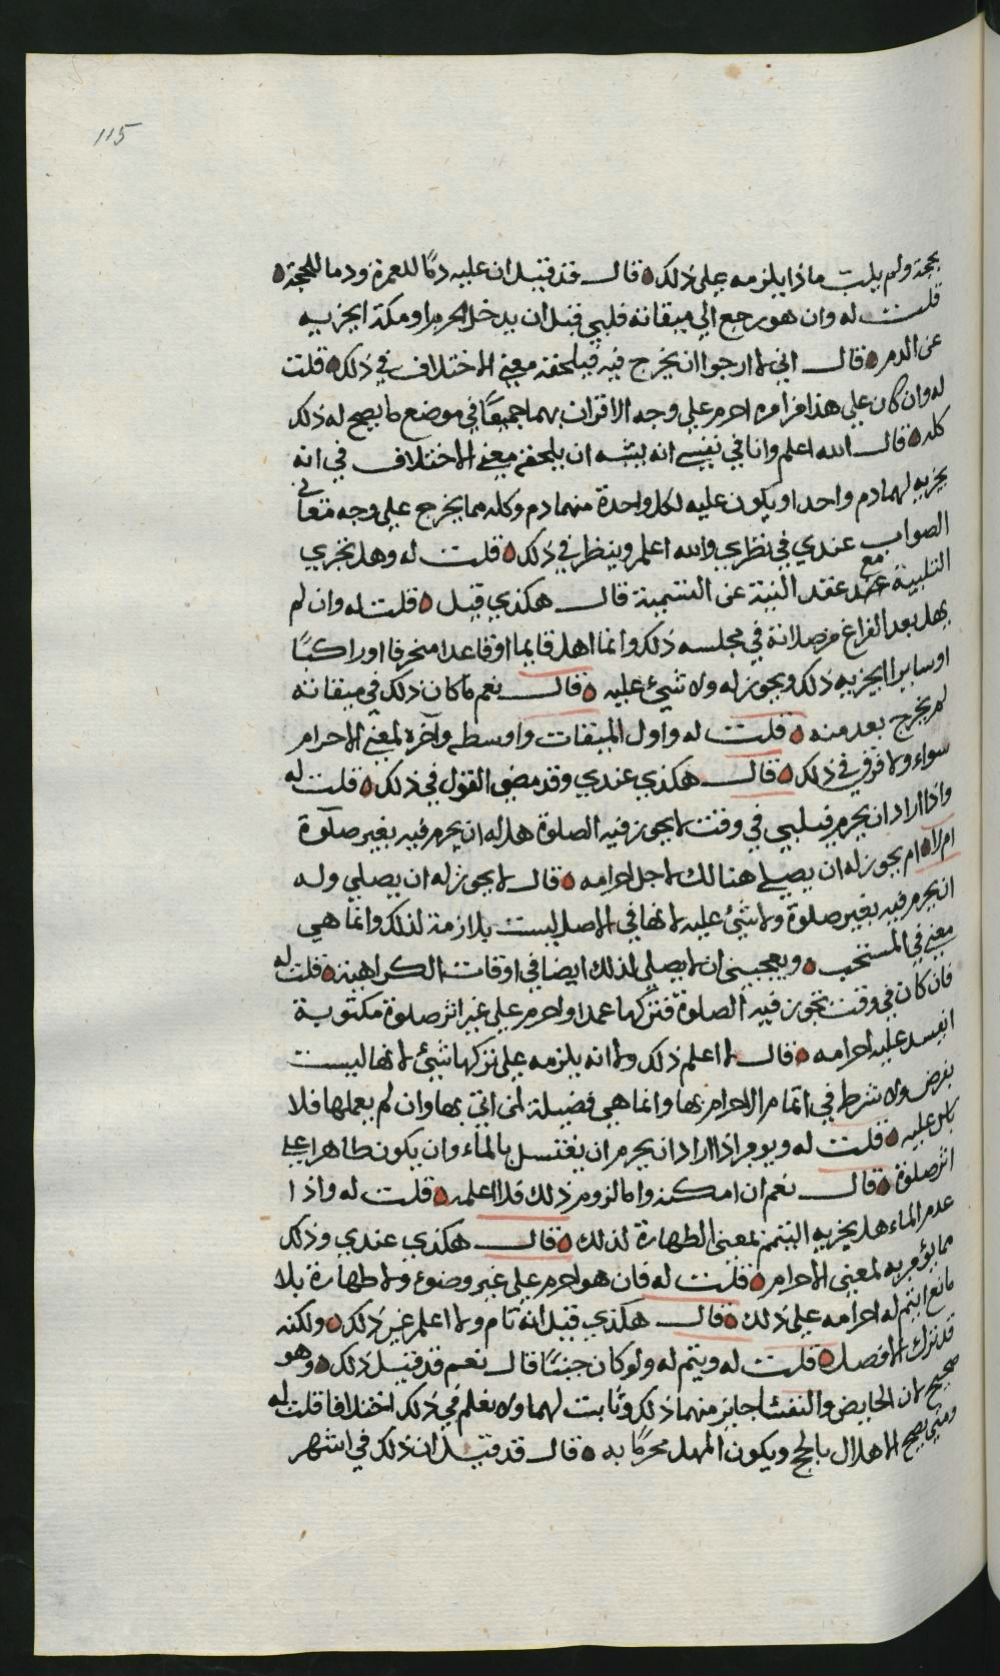 115
بحجة ولم يلب ماذا يلزمه علي ذلك قال قد قيل ان عليه دمًا للعمرة ودما للحجة
قلت له وان هو رجع الي ميقاته فلبي قبل ان يدخل الحرم او مكة ايجزيه
عن الدم قال اني لا ارجوا ان يخرج فيه فيلحقه معني الاختلاف في ذلك قلت
له وان كان علي هذا فرامره احرم علي وجه الاقران بهما جميعًا في موضع ما يصح له ذلك
كله قال الله اعلم وانا في نفسي انه يشبه ان يلحقه معني الاختلاف في انه
يجزيه لهما دم واحد او يكون عليه لكل واحدة منهما دم وكله مما يخرج علي وجه معاني
الصواب عندي في نظري والله اعلم وينظر في ذلك قلت له وهل تجزي
التلبية مع عقد النية عن التسمية قال هكذي قيل قلت له وان لم
يهل بعد الفراغ من صلاته في مجلسه ذلك وانما اهل قايما او قاعدا منحرفا او راكبًا
او سايرا ايجزيه ذلك ويجوز له ولا شيء عليه قال نعم ما كان ذلك في ميقاته
لم يخرج بعد منه قلت له واول الميقات واوسطه وآخره لمعني الاحرام
سواء ولا فرق في ذلك قال هكذي عندي وقد مضي القول في ذلك قلت له
واذا اراد ان يحرم فيلبي في وقت لا يجوز فيه الصلوة هل له ان يحرم فيه بغير صلوة
ام لا ام يجوز له ان يصلي هنالك لاجل احرامه قال لا يجوز له ان يصلي وله
ان يحرم فيه بغير صلوة ولا شيء عليه لانها في الاصل ليست بلازمة لذلك وانما هي
معني في المستحب ويعجبني ان لا يصلي لذلك ايضا في اوقات الكراهية قلت له
فان كان في وقت تجوز فيه الصلوة فتركها عمدا واحرم علي غير اثر صلوة مكتوبة
ايفسد عليه احرامه قال لا اعلم ذلك ولا انه يلزمه علي تركها شيء لانها ليست
بفرض ولا شرط في اتمام الاحرام بها وانما هي فضيلة لمن اتي بها وان لم يعملها فلا
باس عليه قلت له ويومر اذا اراد ان يحرم ان يغتسل بالماء وان يكون طاهرا علي
اثر صلوة قال نعم ان امكنه واما لزوم ذلك فلا اعلمه قلت له واذا
عدم الماء هل يجزيه التيمم لمعني الطهارة لذلك قال هكذي عندي وذلك
مما يؤمر به لمعني الاحرام قلت له فان هو احرم علي غير وضوء ولا طهارة بلا
مانع ايتم له احرامه علي ذلك قال هكذي قيل انه تام ولا اعلم غير ذلك ولكنه
قد ترك الافضل قلت له ويتم له ولو كان جنبًا قال نعم قد قيل ذلك وهو
صحيح لان الحايض والنفسا جايز منهما ذلك وثابت لهما ولا نعلم في ذلك اختلافا قلت له
ومتي يصح الاهلال بالحج ويكون المهل محرمًا به قال قد قيل ان ذلك في اشهر